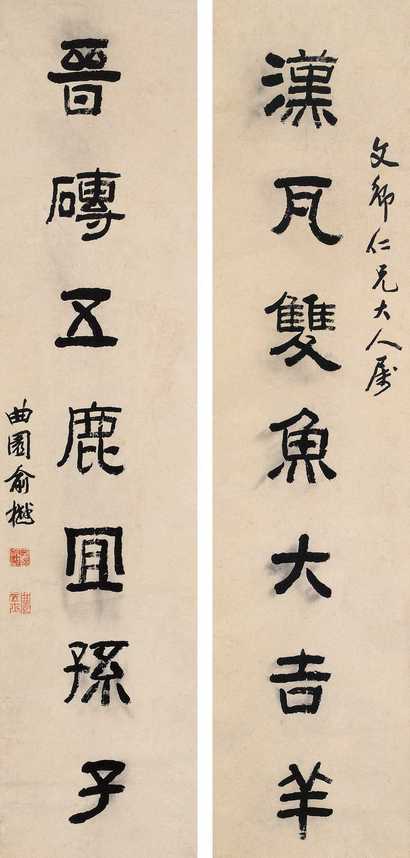 文卿仁兄大人屬
漢瓦雙魚大吉羊
晉磚五鹿宜孫子
曲園俞樾